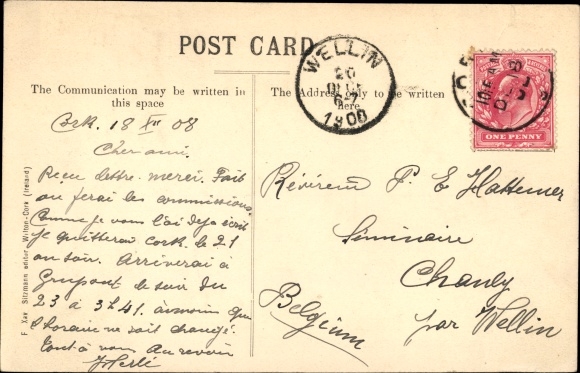 POST CARD
The Communication may be written in
this space
The Address only to be written
here
WELLIN
20
6-7
1908
ONE PENNY
F. Xav Sitzmann editor Wilton-Cork (Ireland)
Cork. 18 Xbr 08
Cher ami.
Reçu lettre. merci. Fait
ou ferai les commissions.
Comme je vous l'ai déjà écrit
je quitterai Cork le 21
au soir. Arriverai à
Grupont le soir du
23 à 3h41. à moins que
l'horaire ne soit changé.
tout à vous Au revoir
Révérend P. E Hattemer
Séminaire
Chanly
par Wellin
Belgium